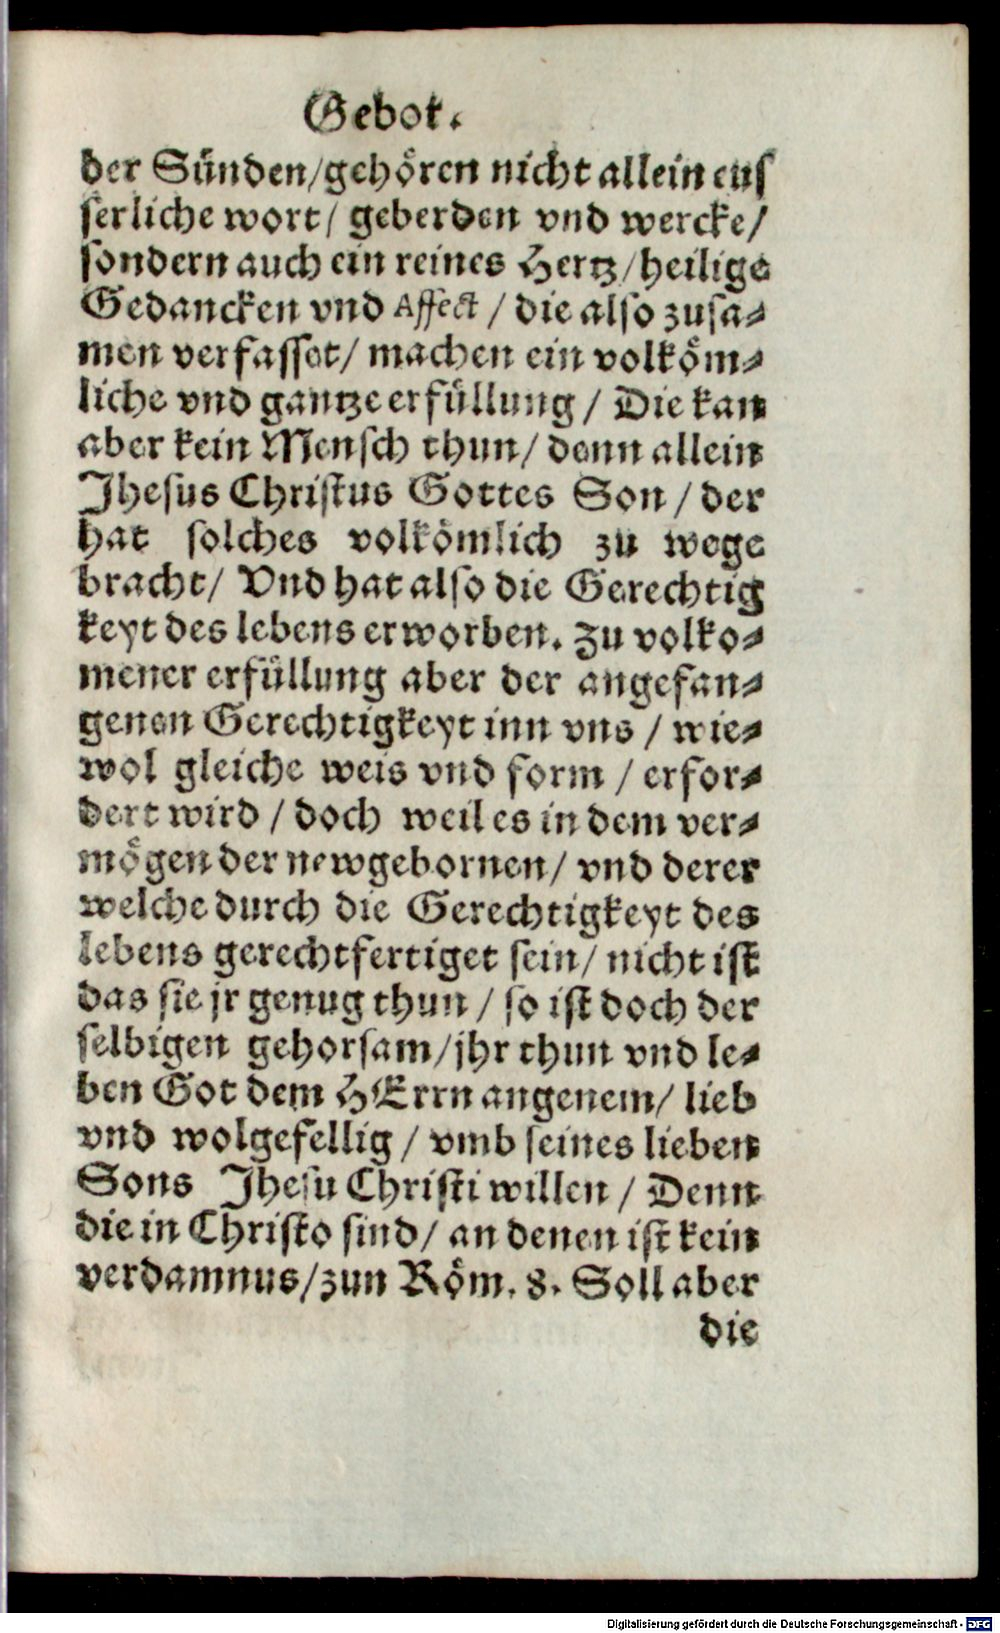 Gebot.
der Sünden/gehören nicht allein eus
serliche wort/ geberden vnd wercke/
sondern auch ein reines Hertz/heilige
Gedancken vnd Affect / die also zusa-
men verfasset/ machen ein volköm-
liche vnd gantze erfüllung / Die kan
aber kein Mensch thun/ denn allein
Jhesus Christus Gottes Son / der
hat solches volkömlich zu wege
bracht/ Vnd hat also die Gerechtig
keyt des lebens erworben. Zu volko-
mener erfüllung aber der angefan-
genen Gerechtigkeyt inn vns / wie-
wol gleiche weis vnd form / erfor-
dert wird / doch weil es in dem ver-
mögen der newgebornen/ vnd derer
welche durch die Gerechtigkeyt des
lebens gerechtfertiget sein/ nicht ist
das sie jr genug thun / so ist doch der
selbigen gehorsam/jhr thun vnd le-
ben Got dem HErrn angenem/ lieb
vnd wolgefellig / vmb seines lieben
Sons Jhesu Christi willen / Denn
die in Christo sind/ an denen ist kein
verdamnus/zun Röm. 8. Soll aber
die
Digitalisierung gefördert durch die Deutsche Forschungsgemeinschaft - DFG